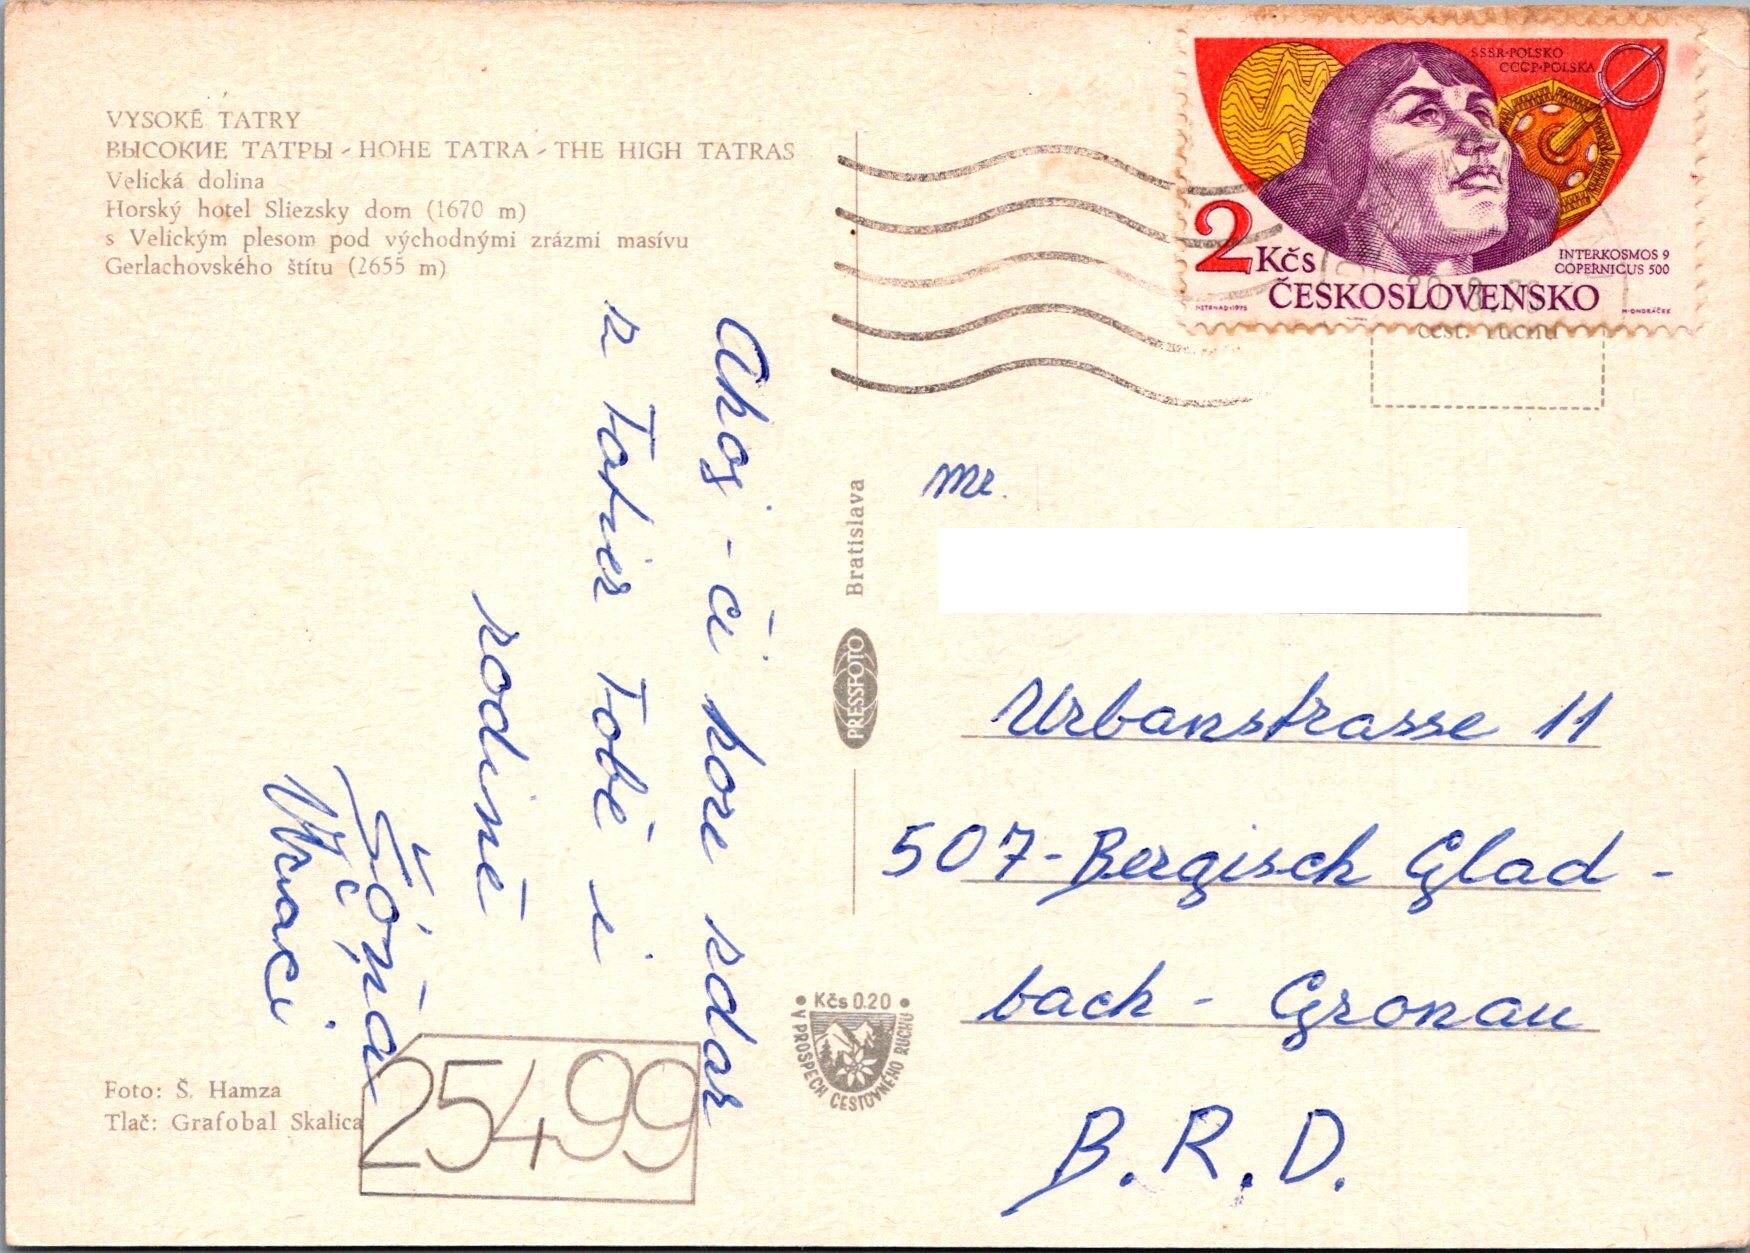 VYSOKÉ TATRY
ВЫСОКИЕ ТАТРЫ - HOHE TATRA - THE HIGH TATRAS
Velická dolina
Horský hotel Sliezsky dom (1670 m)
s Velickým plesom pod východnými zrázmi masívu
Gerlachovského štítu (2655 m)
SSSR·POLSKO
CCCP·POLSKA
INTERKOSMOS 9
COPERNICUS 500
2 Kčs
ČESKOSLOVENSKO
M·ONDRÁČEK
cest. ruchu
Ahoj - či hore zdar
z Tatier Tobě i
rodině
Bratislava
PRESSFOTO
Mr.
Urbanstrasse 11
507-Bergisch Glad-
bach - Gronau
B.R.D.
Kčs 0.20
V PROSPECH CESTOVNÉHO RUCHU
Foto: Š. Hamza
Tlač: Grafobal Skalica
25499